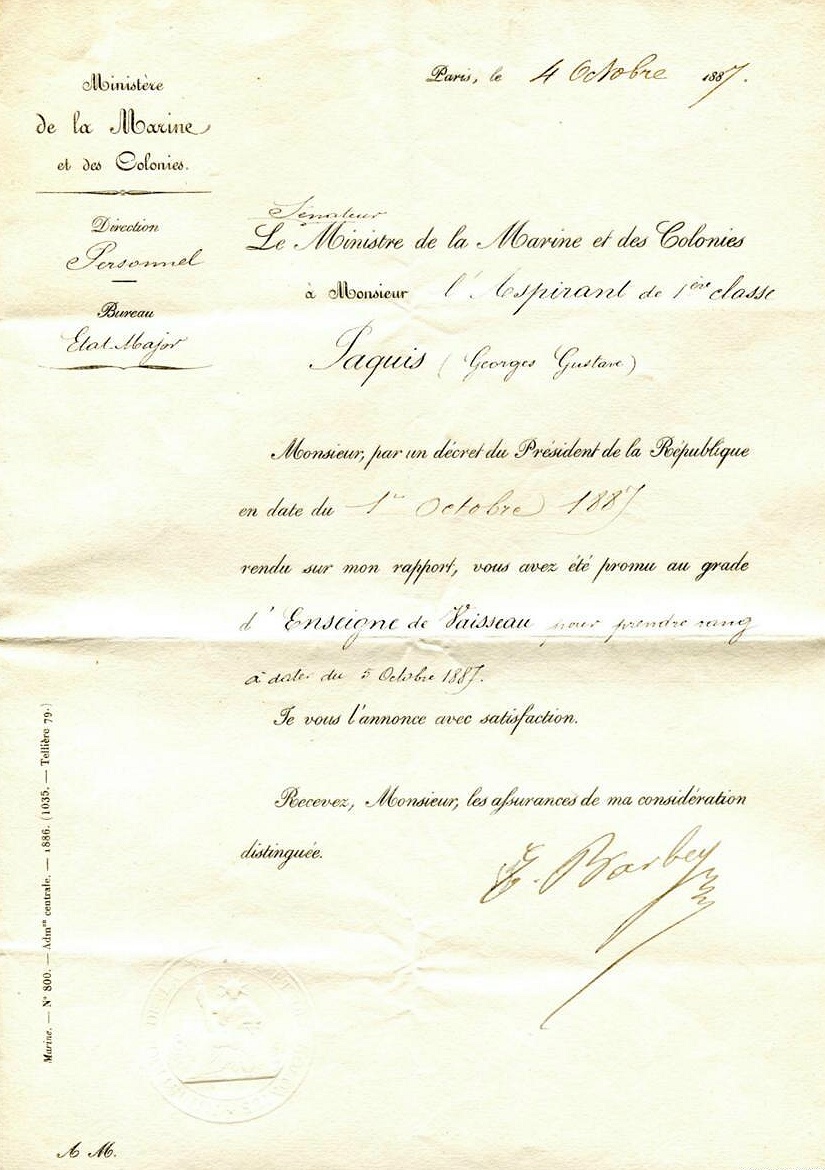 Ministère
de la Marine
et des Colonies.
Direction
Personnel
Bureau
Etat-Major
Paris, le 4 Octobre 1887.
Sénateur
Le Ministre de la Marine et des Colonies
à Monsieur l'Aspirant de 1ère classe
Paquis (Georges Gustave)
Monsieur, par un décret du Président de la République
en date du 1er Octobre 1887
rendu sur mon rapport, vous avez été promu au grade
d'Enseigne de Vaisseau pour prendre rang
à dater du 5 Octobre 1887.
Je vous l'annonce avec satisfaction.
Recevez, Monsieur, les assurances de ma considération
distinguée.
E. Barbey
Marine. — No 800. — Admon centrale. — 1886. (1035. — Tellière 79.)
A M.